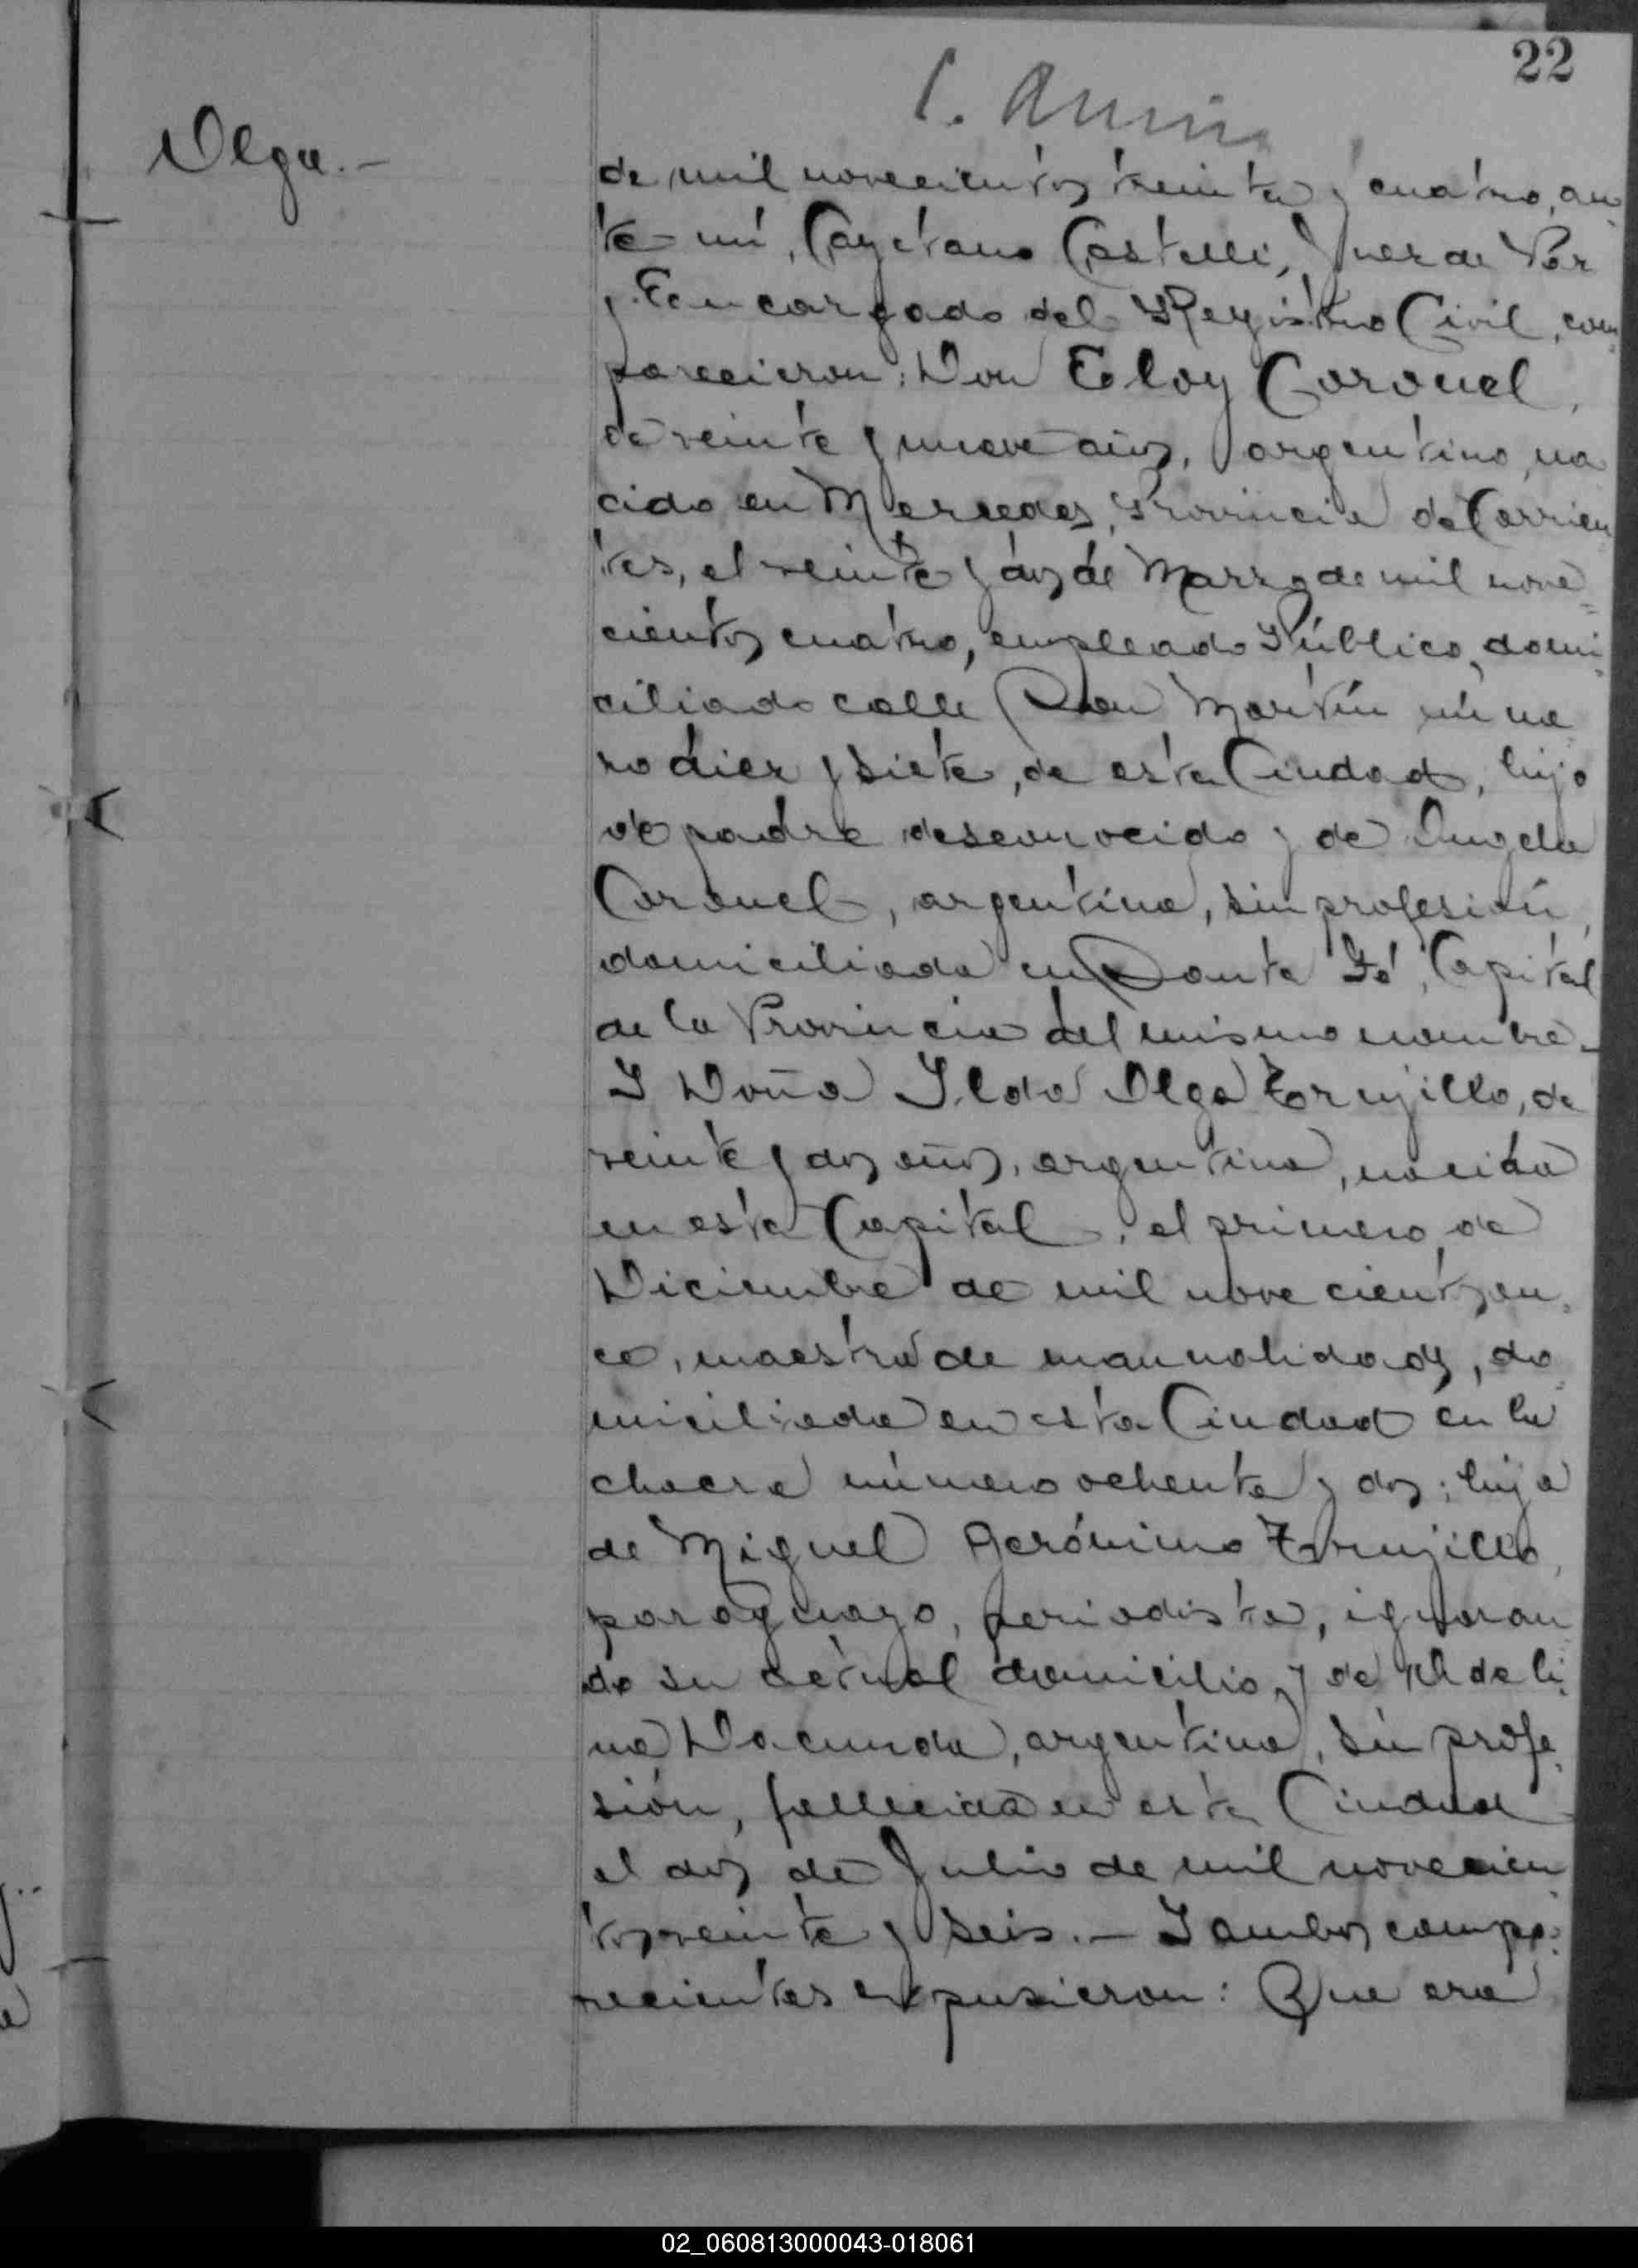 22
Olga.-
de mil novecientos treinta y cuatro, an-
te mí, Cayetano Castelli, Juez de Paz
y Encargado del Registro Civil, com-
parecieron: Don Eloy Coronel,
de veinte y nueve años, argentino, na
cido en Mercedes, Provincia de Corrien-
tes, el veinte y dos de Marzo de mil nove-
cientos cuatro, empleado Público, domi-
ciliado calle San Martín núme
ro diez y siete, de esta Ciudad, hijo
de padre desconocido y de Angela
Coronel, argentina, sin profesión,
domiciliada en Santa Fé, Capital
de la Provincia del mismo nombre.-
Y Doña Ilda Olga Trujillo, de
veinte y dos años, argentina, nacida
en esta Capital, el primero de
Diciembre de mil novecientos on-
ce, maestra de manualidades, do-
miciliada en esta Ciudad en la
chacra número ochenta y dos; hija
de Miguel Gerónimo Trujillo,
paraguayo, periodista, ignoran
do su actual domicilio, y de Adeli-
na Dacunda, argentina, sin profe-
sión, fallecida en esta Ciudad
el dos de Julio de mil novecien
tos veinte y seis.- Y ambos compa-
recientes expusieron: Que era
02_060813000043-018061